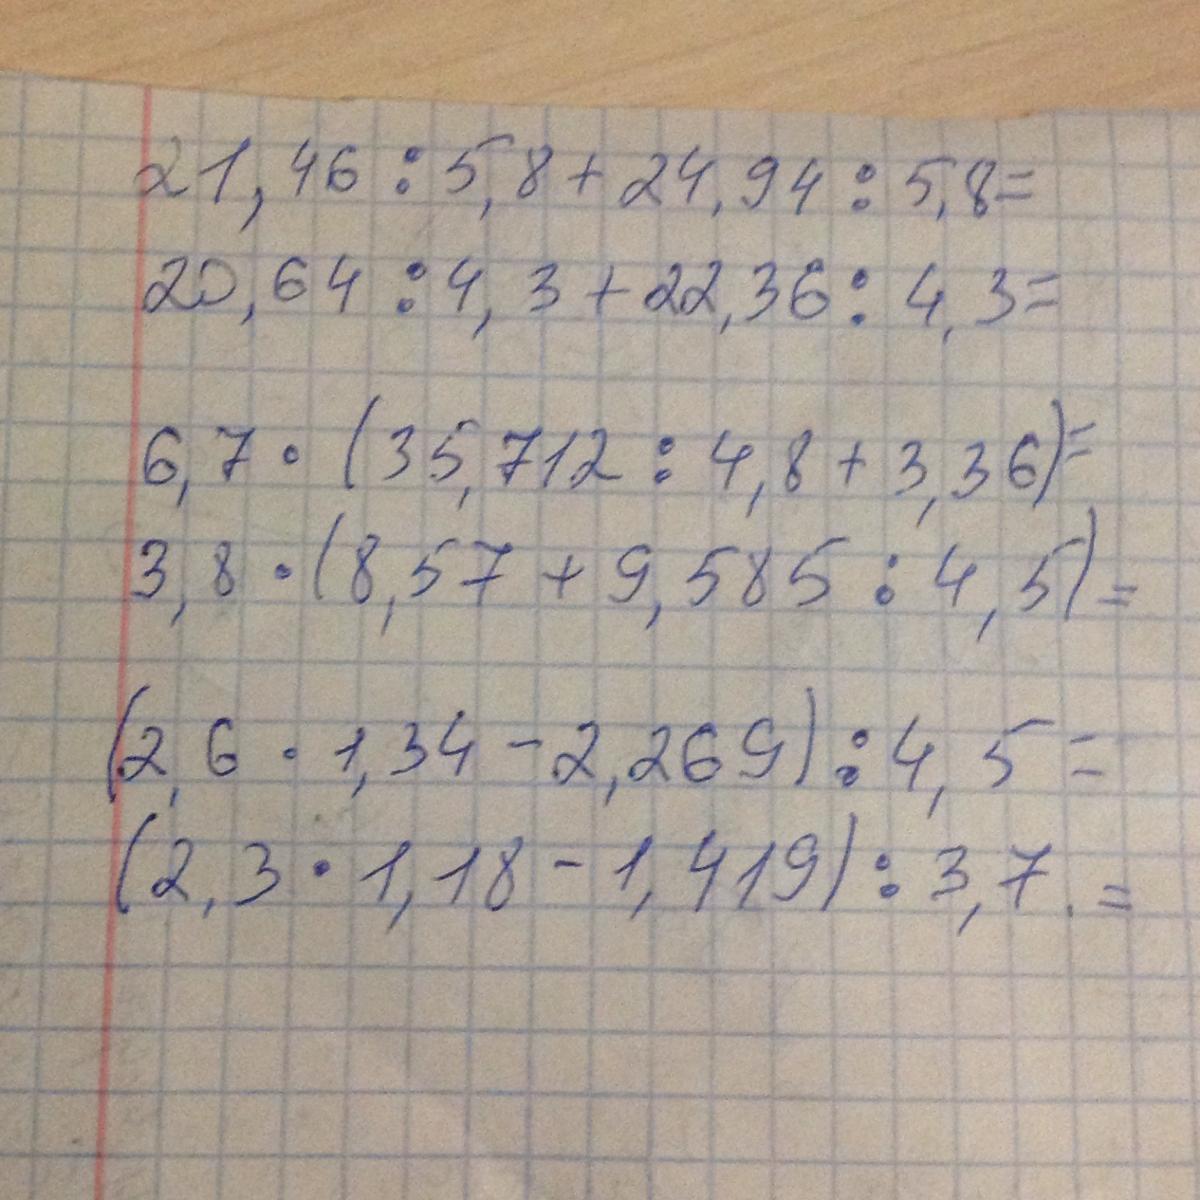 21,46 : 5,8 + 24,94 : 5,8 =
20,64 : 4,3 + 22,36 : 4,3 =
6,7 · (35,712 : 4,8 + 3,36) =
3,8 · (8,57 + 9,585 : 4,5) =
(2,6 · 1,34 - 2,269) : 4,5 =
(2,3 · 1,18 - 1,419) : 3,7 =